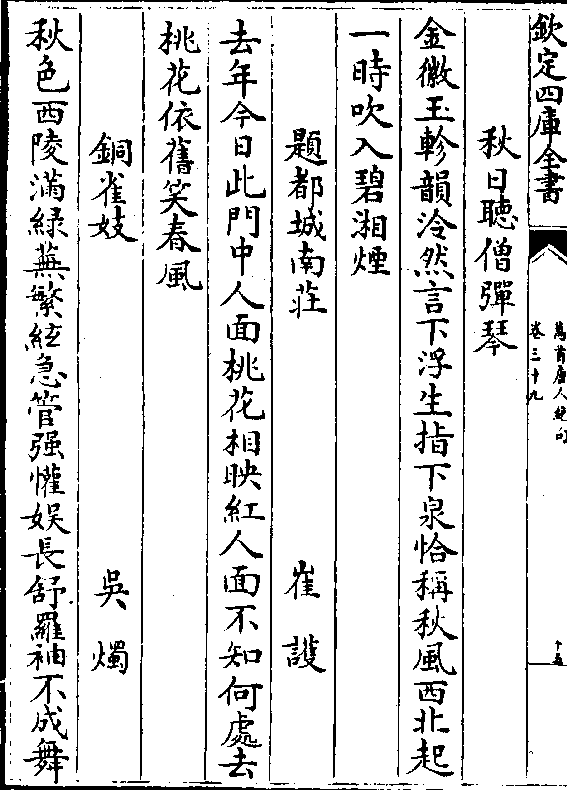 欽定四庫全書
萬首唐人絶句
卷三十九
十五
秋日聽僧彈琴
金徽玉軫韻泠然言下浮生指下泉恰稱秋風西北起
一時吹入碧湘煙
題都城南莊 崔護
去年今日此門中人面桃花相映紅人面不知何處去
桃花依舊笑春風
銅雀妓 吳燭
秋色西陵滿緑蕪繁絃急管强懽娱長舒羅袖不成舞